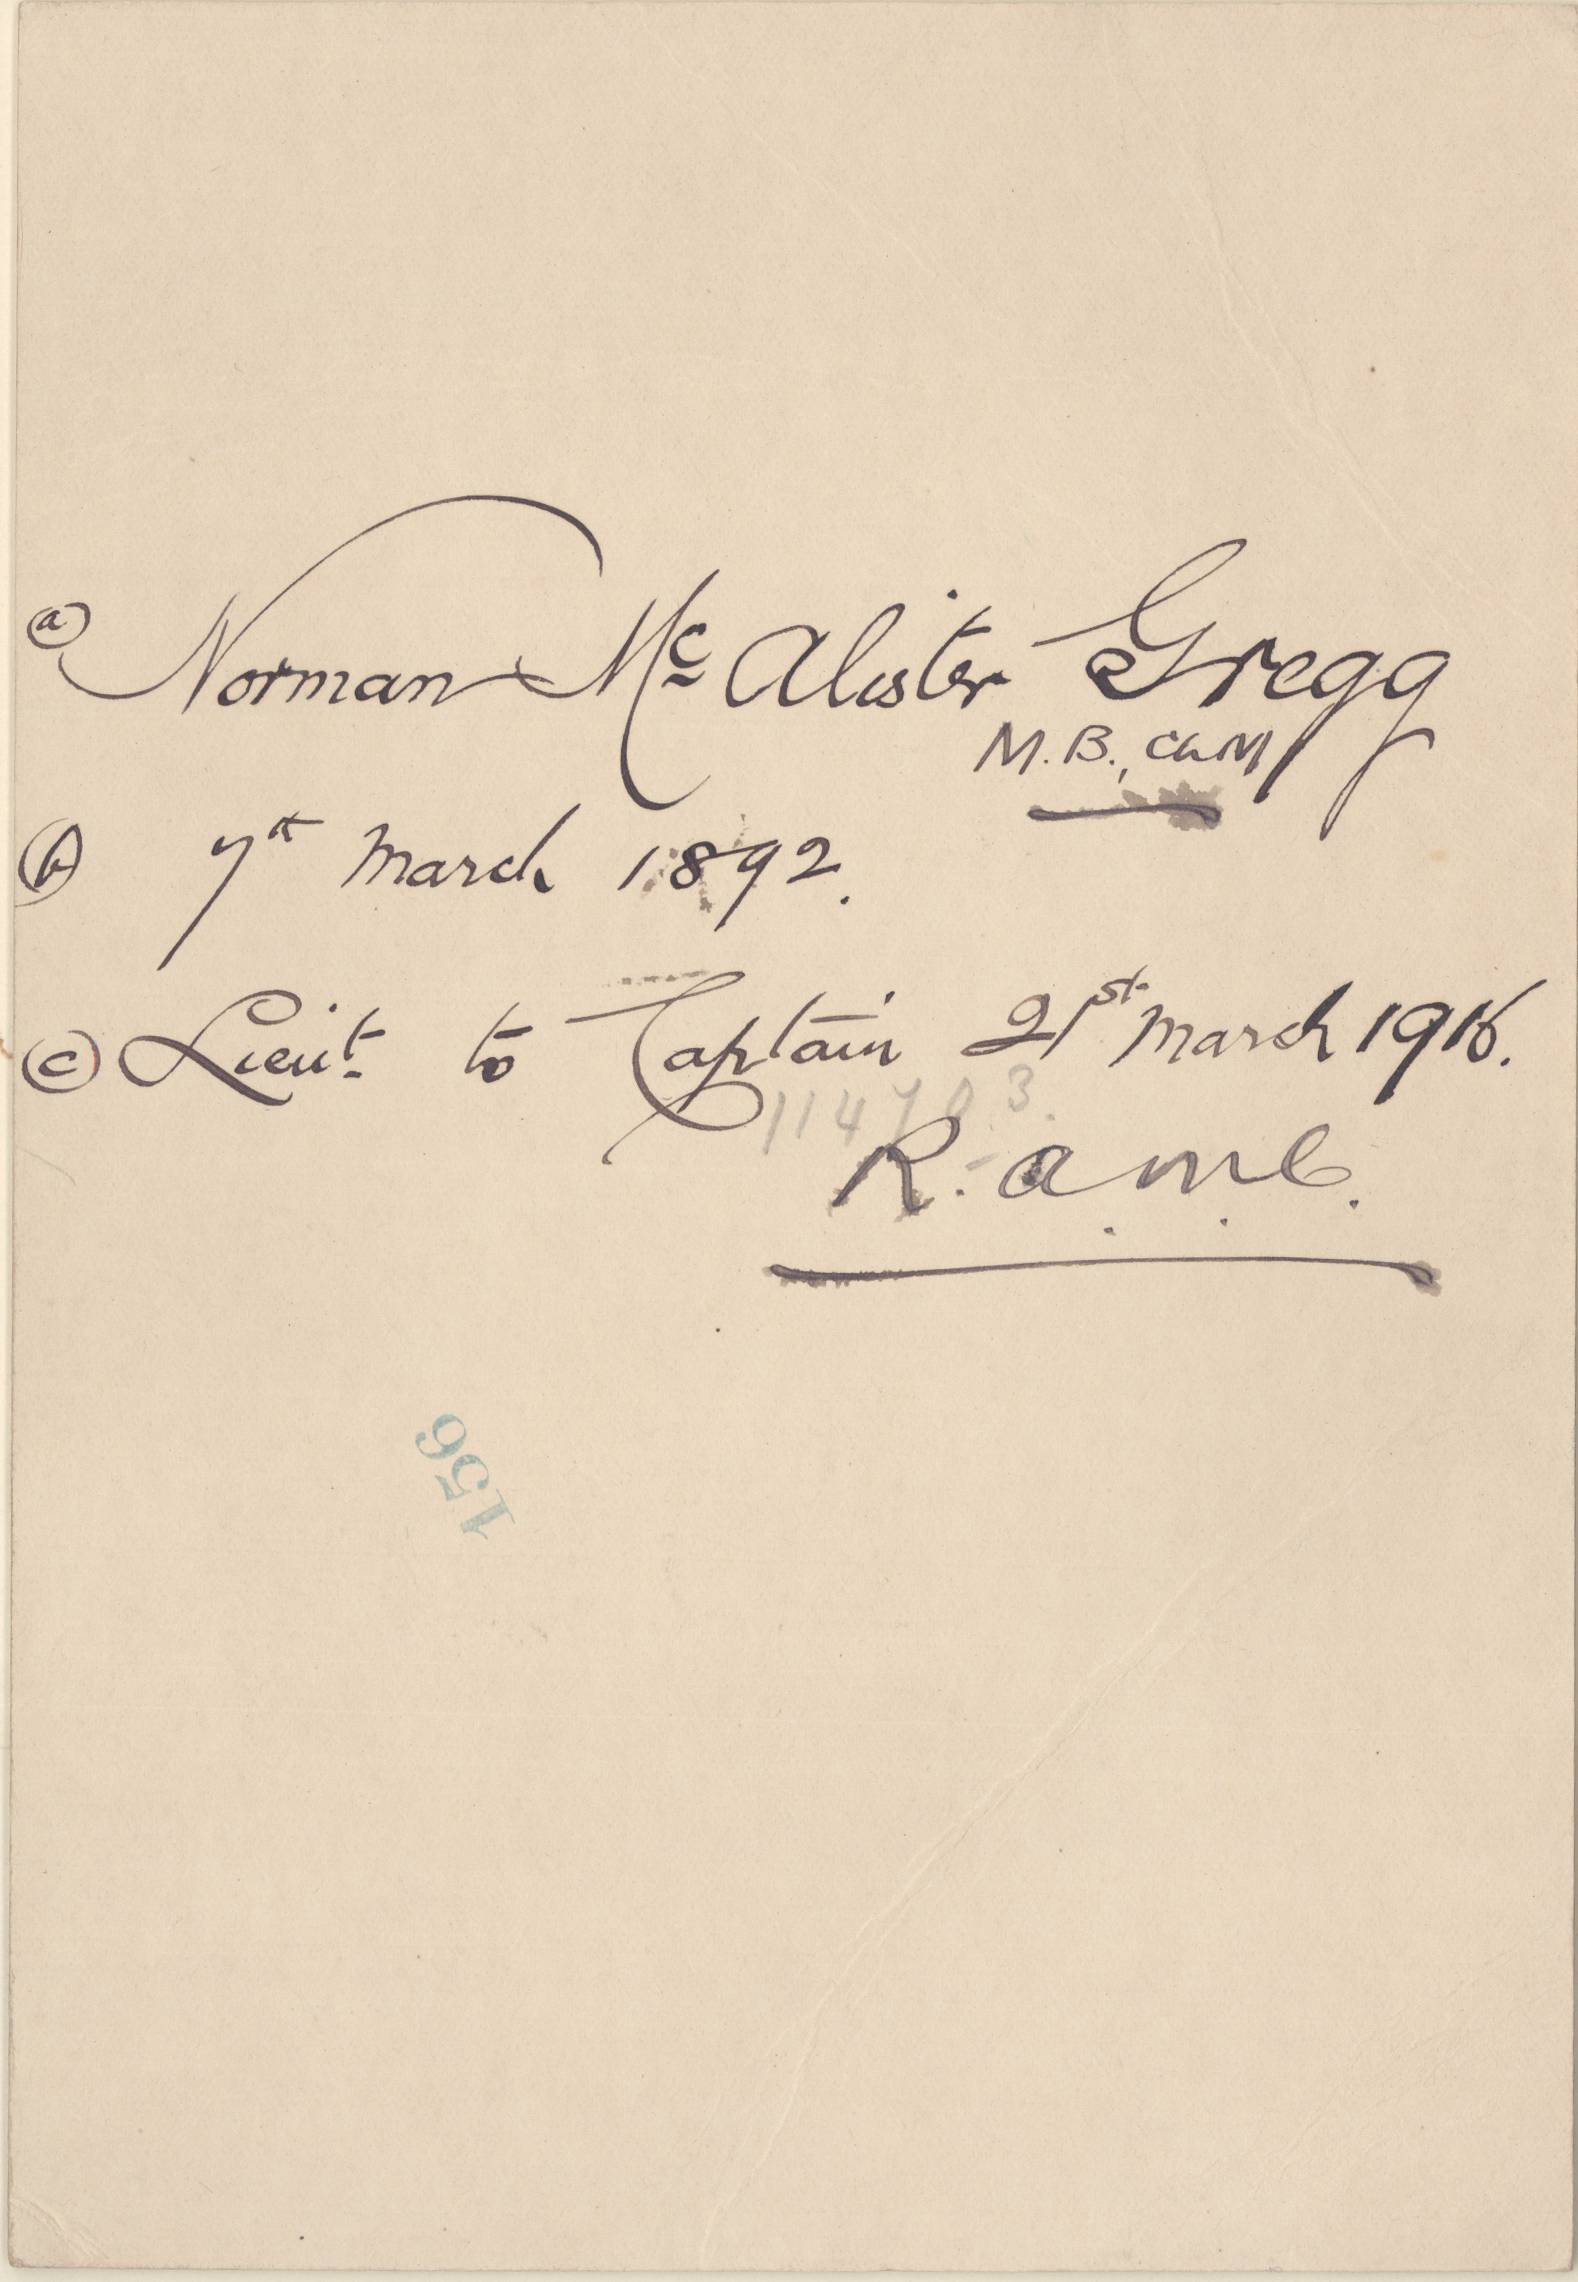 (a) Norman Mc Alister Gregg
M.B., ChM
(b) 7th March 1892.
(c) Lieut. to Captain 21st March 1916.
R.A.M.C.
156